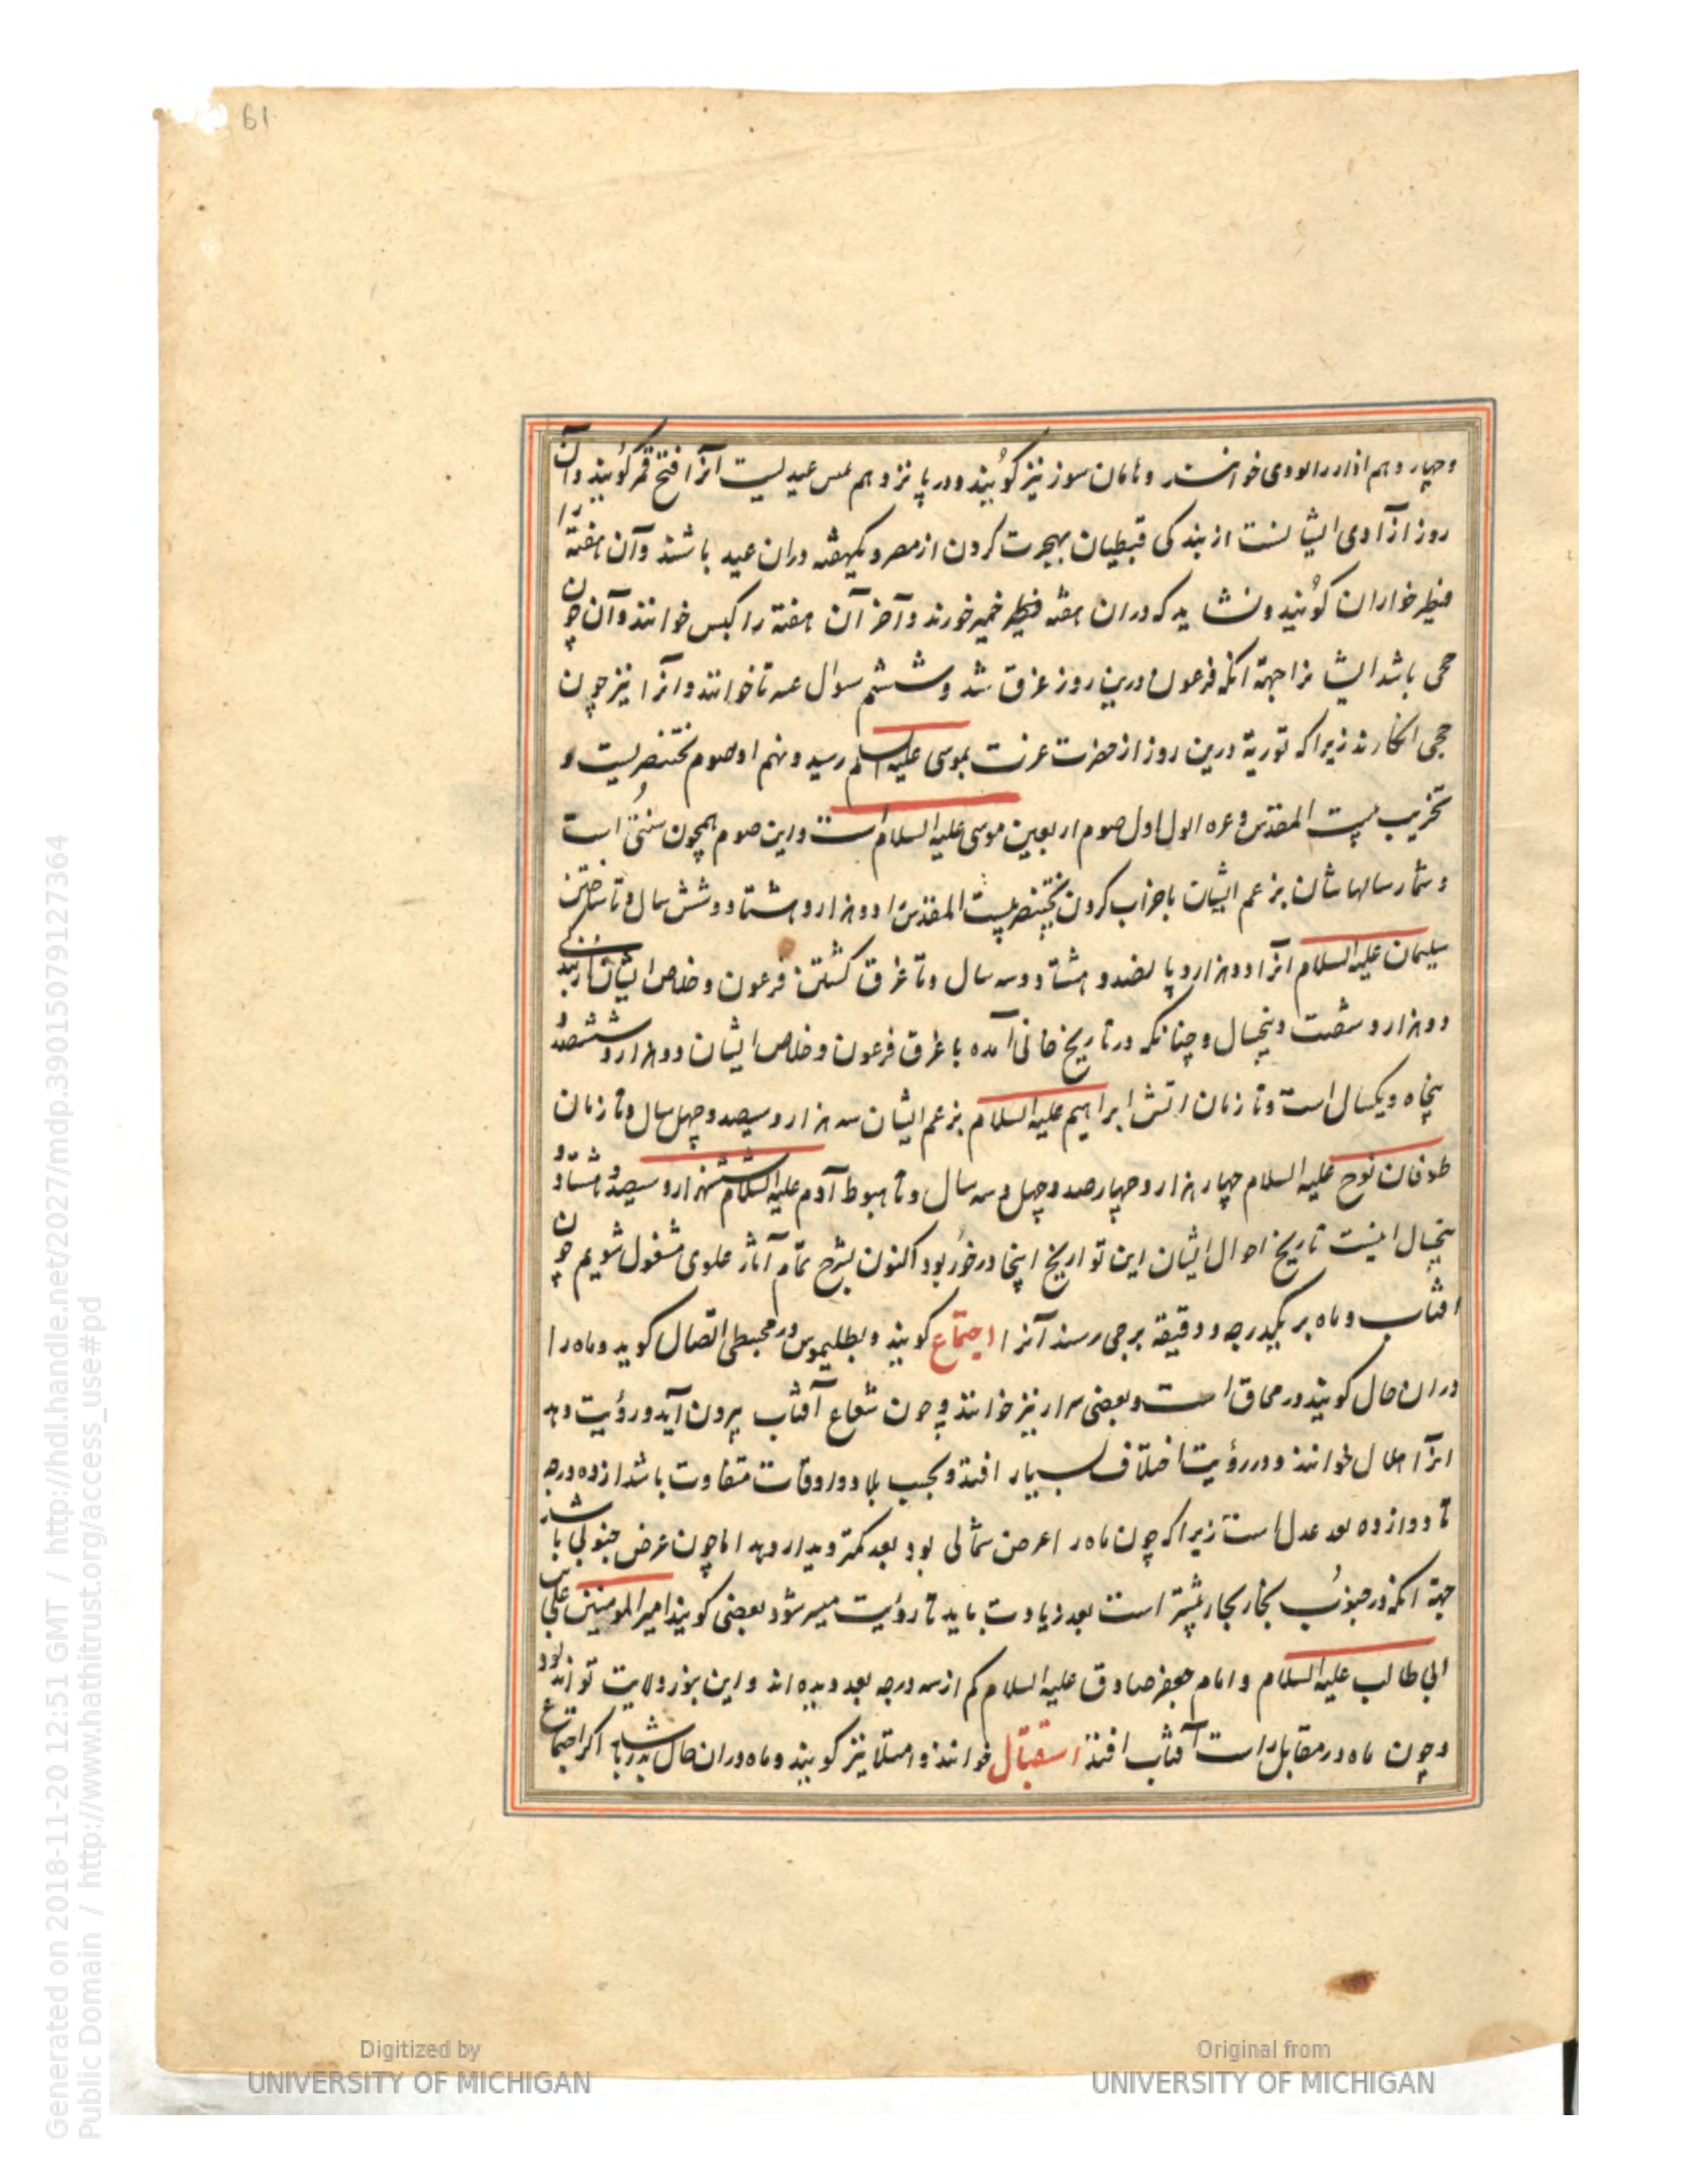 61
وچهاردهم اذار را بوری خوانند و هامان سوز نیز کویند ودر پانزدهم عیدیست آنرا فتح قمر کویند وآن
روز آزادی ایشانست از بندکی قبطیان بهجرت کردن از مصر ویکهفته دران عید باشند وآن هفته را
فطیر خواران کویند ونشاید که دران هفته فطیر خمیر خورند وآخر آن هفته را کبس خوانند وآن چون
حجی باشد ایشانرا جهة آنکه فرعون درین روز غرق شد وششم خوانند وآنرا نیز چون
حجی انکارند زیرا که توریة درین روز از حضرت عزت بموسی علیه السلم رسید ونهم او صوم بختنصریست و
تخریب بیت المقدس وغره ایلول اول صوم اربعین موسی علیه السلام است واین صوم همچون سنتی است
وشمار سالهاشان بزعم ایشان با خراب کردن بختنصر بیت المقدس را دو هزار وهشتاد وشش سال وتا ساختن
سلیمان علیه السلام آنرا دو هزار وپانصد وهشتاد وسه سال وتا غرق کشتن فرعون وخلاص ایشان از بندکی
دو هزار وشصت وپنجسال وچنانکه در تاریخ خانی آمده با غرق فرعون وخلاص ایشان دو هزار وششصد و
پنجاه ویکسال است وتا زمان آتش ابراهیم علیه السلام بزعم ایشان سه هزار وسیصد وچهل سال وتا زمان
طوفان نوح علیه السلام چهار هزار وچهارصد وچهل وسه سال وتا هبوط آدم علیه السلام ششهزار وسیصد وهشتاد و
پنجسال اینست تاریخ احوال ایشان این تواریخ اینجا درخور بود اکنون بشرح تمام آثار علوی مشغول شویم چون
افتاب وماه بر یکدرجه ودقیقه برجی رسند آنرا اجتماع کویند وبطلیموس در مجسطی اتصال کوید وماه را
دران حال کویند در محاق است وبعضی سرار نیز خوانند وچون شعاع آفتاب بیرون آید ورؤیت دهد
آنرا هلال خوانند ودر رؤیت اختلاف بسیار افتد وبحسب بلاد واوقات متفاوت باشد از ده درجه
تا دوازده بعد عدل است زیرا که چون ماه را عرض شمالی بود بعد کمتر دیدار دهد اما چون عرض جنوبی باشد
جهة آنکه در جنوب بخار بحار بیشتر است بعد زیادت باید تا رؤیت میسر شود بعضی کویند امیر المومنین علی بن
ابی طالب علیه السلام وامام جعفر صادق علیه السلام کم از سه درجه بعد دیده اند واین بنور ولایت تواند بود
وچون ماه در مقابل راست آفتاب افتد استقبال خوانند وامتلا نیز کویند وماه دران حال بدر باشد اکر اجتماع
Digitized by
UNIVERSITY OF MICHIGAN
Original from
UNIVERSITY OF MICHIGAN
Generated on 2018-11-20 12:51 GMT / http://hdl.handle.net/2027/mdp.39015079127364
Public Domain / http://www.hathitrust.org/access_use#pd